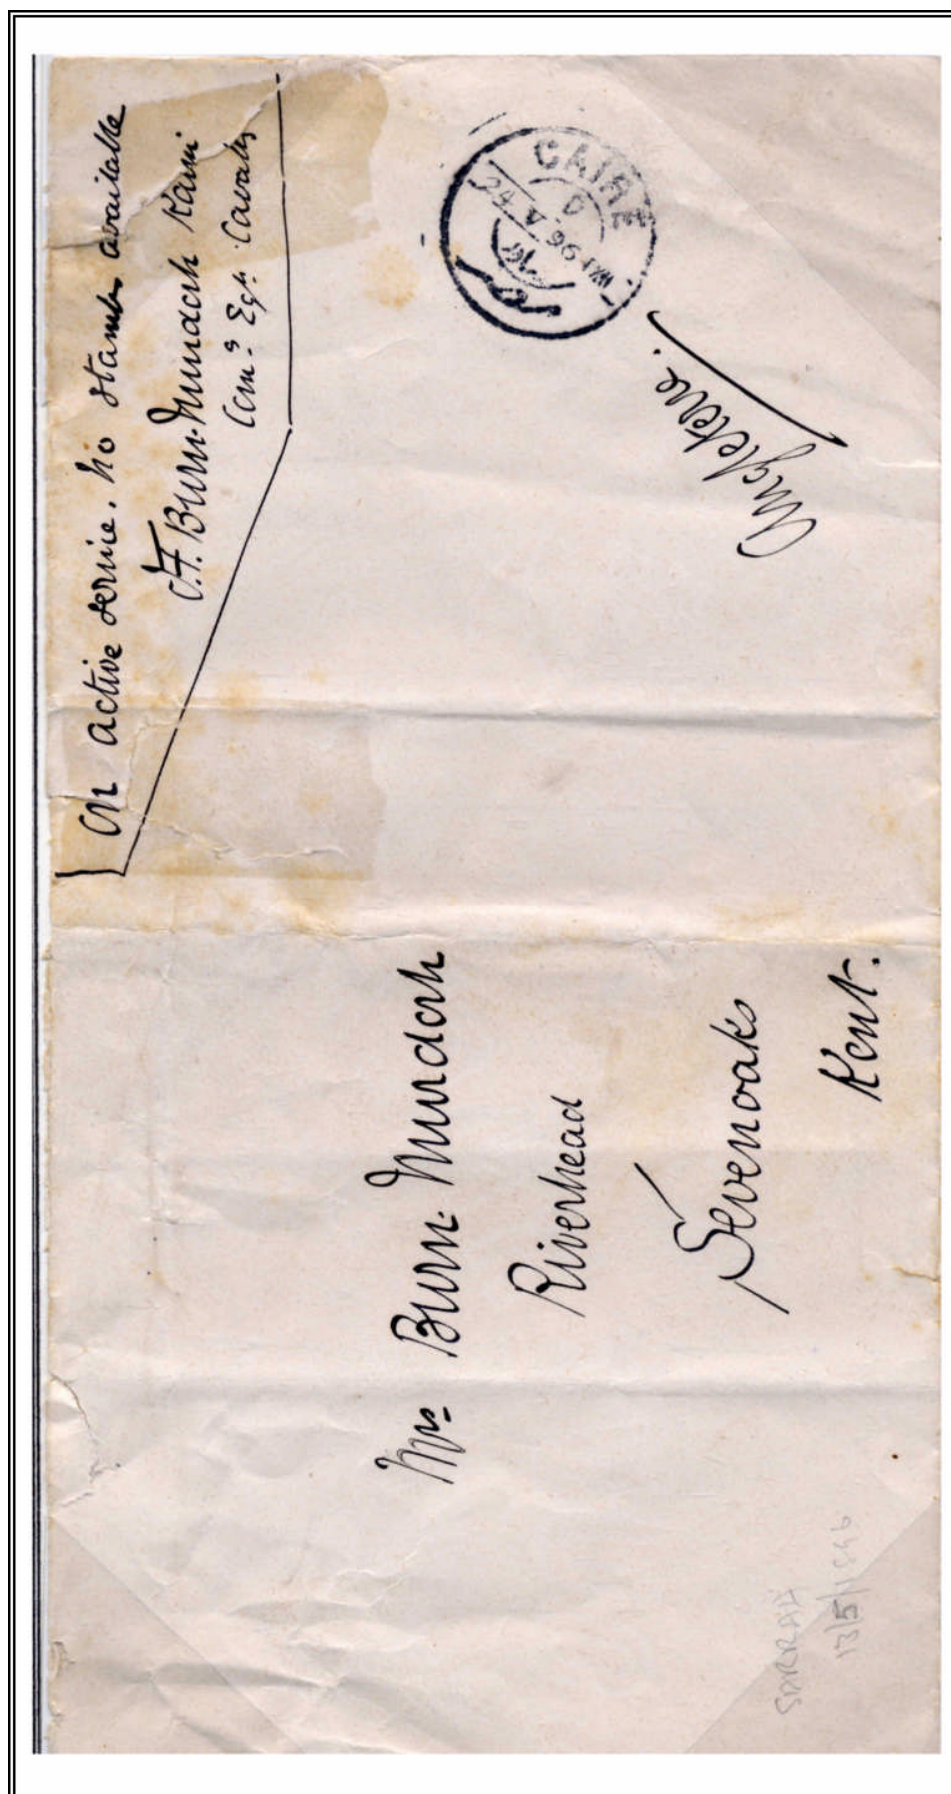 On active service. No stamps available
J.F. Burn-Murdoch Kaim
Comᵍ Egⁿ. Cavalry
CAIRE
D
24 V 96
Angleterre.
Mrs Burn-Murdoch
Riverhead
Sevenoaks
Kent.
SARRAH
13/5/1896